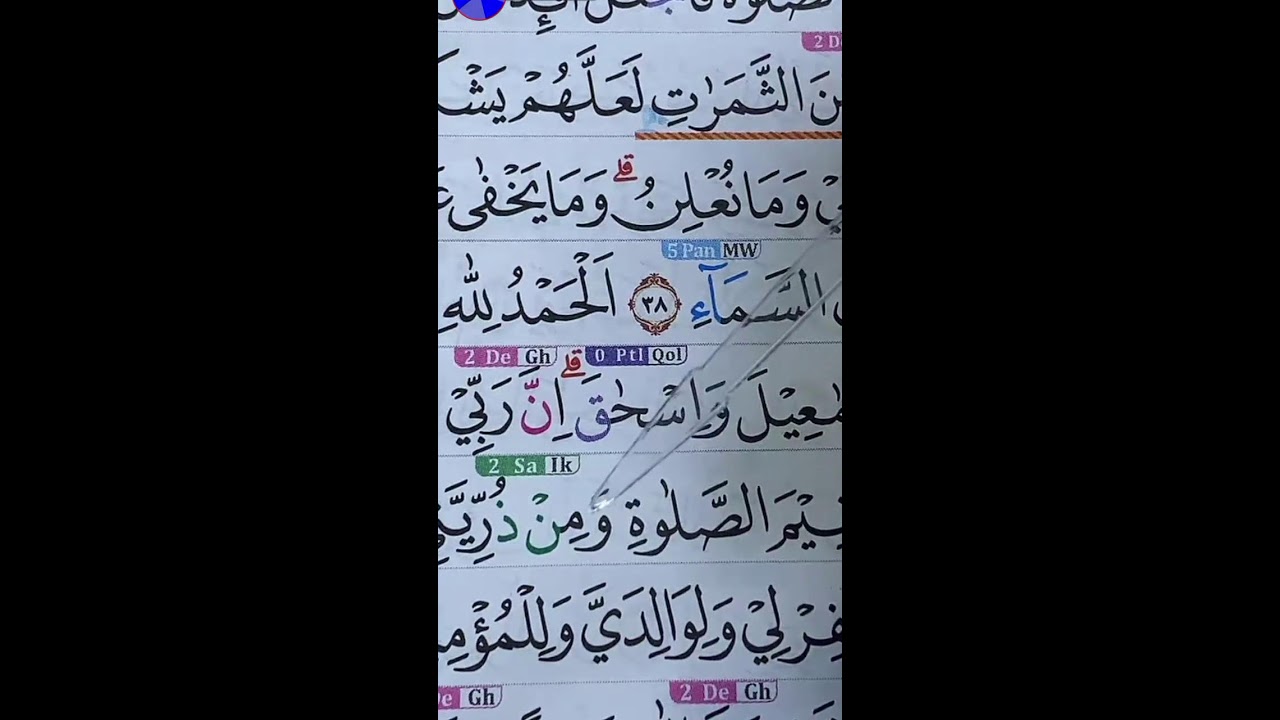 2 De
نَ الثَّمَرٰتِ لَعَلَّهُمْ يَشْكُ
وَمَا نُعْلِنُ ۗ وَمَا يَخْفٰى
5 Pan MW
السَّمَاۤءِ ٣٨ اَلْحَمْدُ لِلّٰهِ
2 De Gh 0 Ptl Qol
مٰعِيْلَ وَاِسْحٰقَ ۗ اِنَّ رَبِّيْ
2 Sa Ik
قِيْمَ الصَّلٰوةِ وَمِنْ ذُرِّيَّتِ
فِرْ لِيْ وَلِوَالِدَيَّ وَلِلْمُؤْمِ
De Gh 2 De Gh